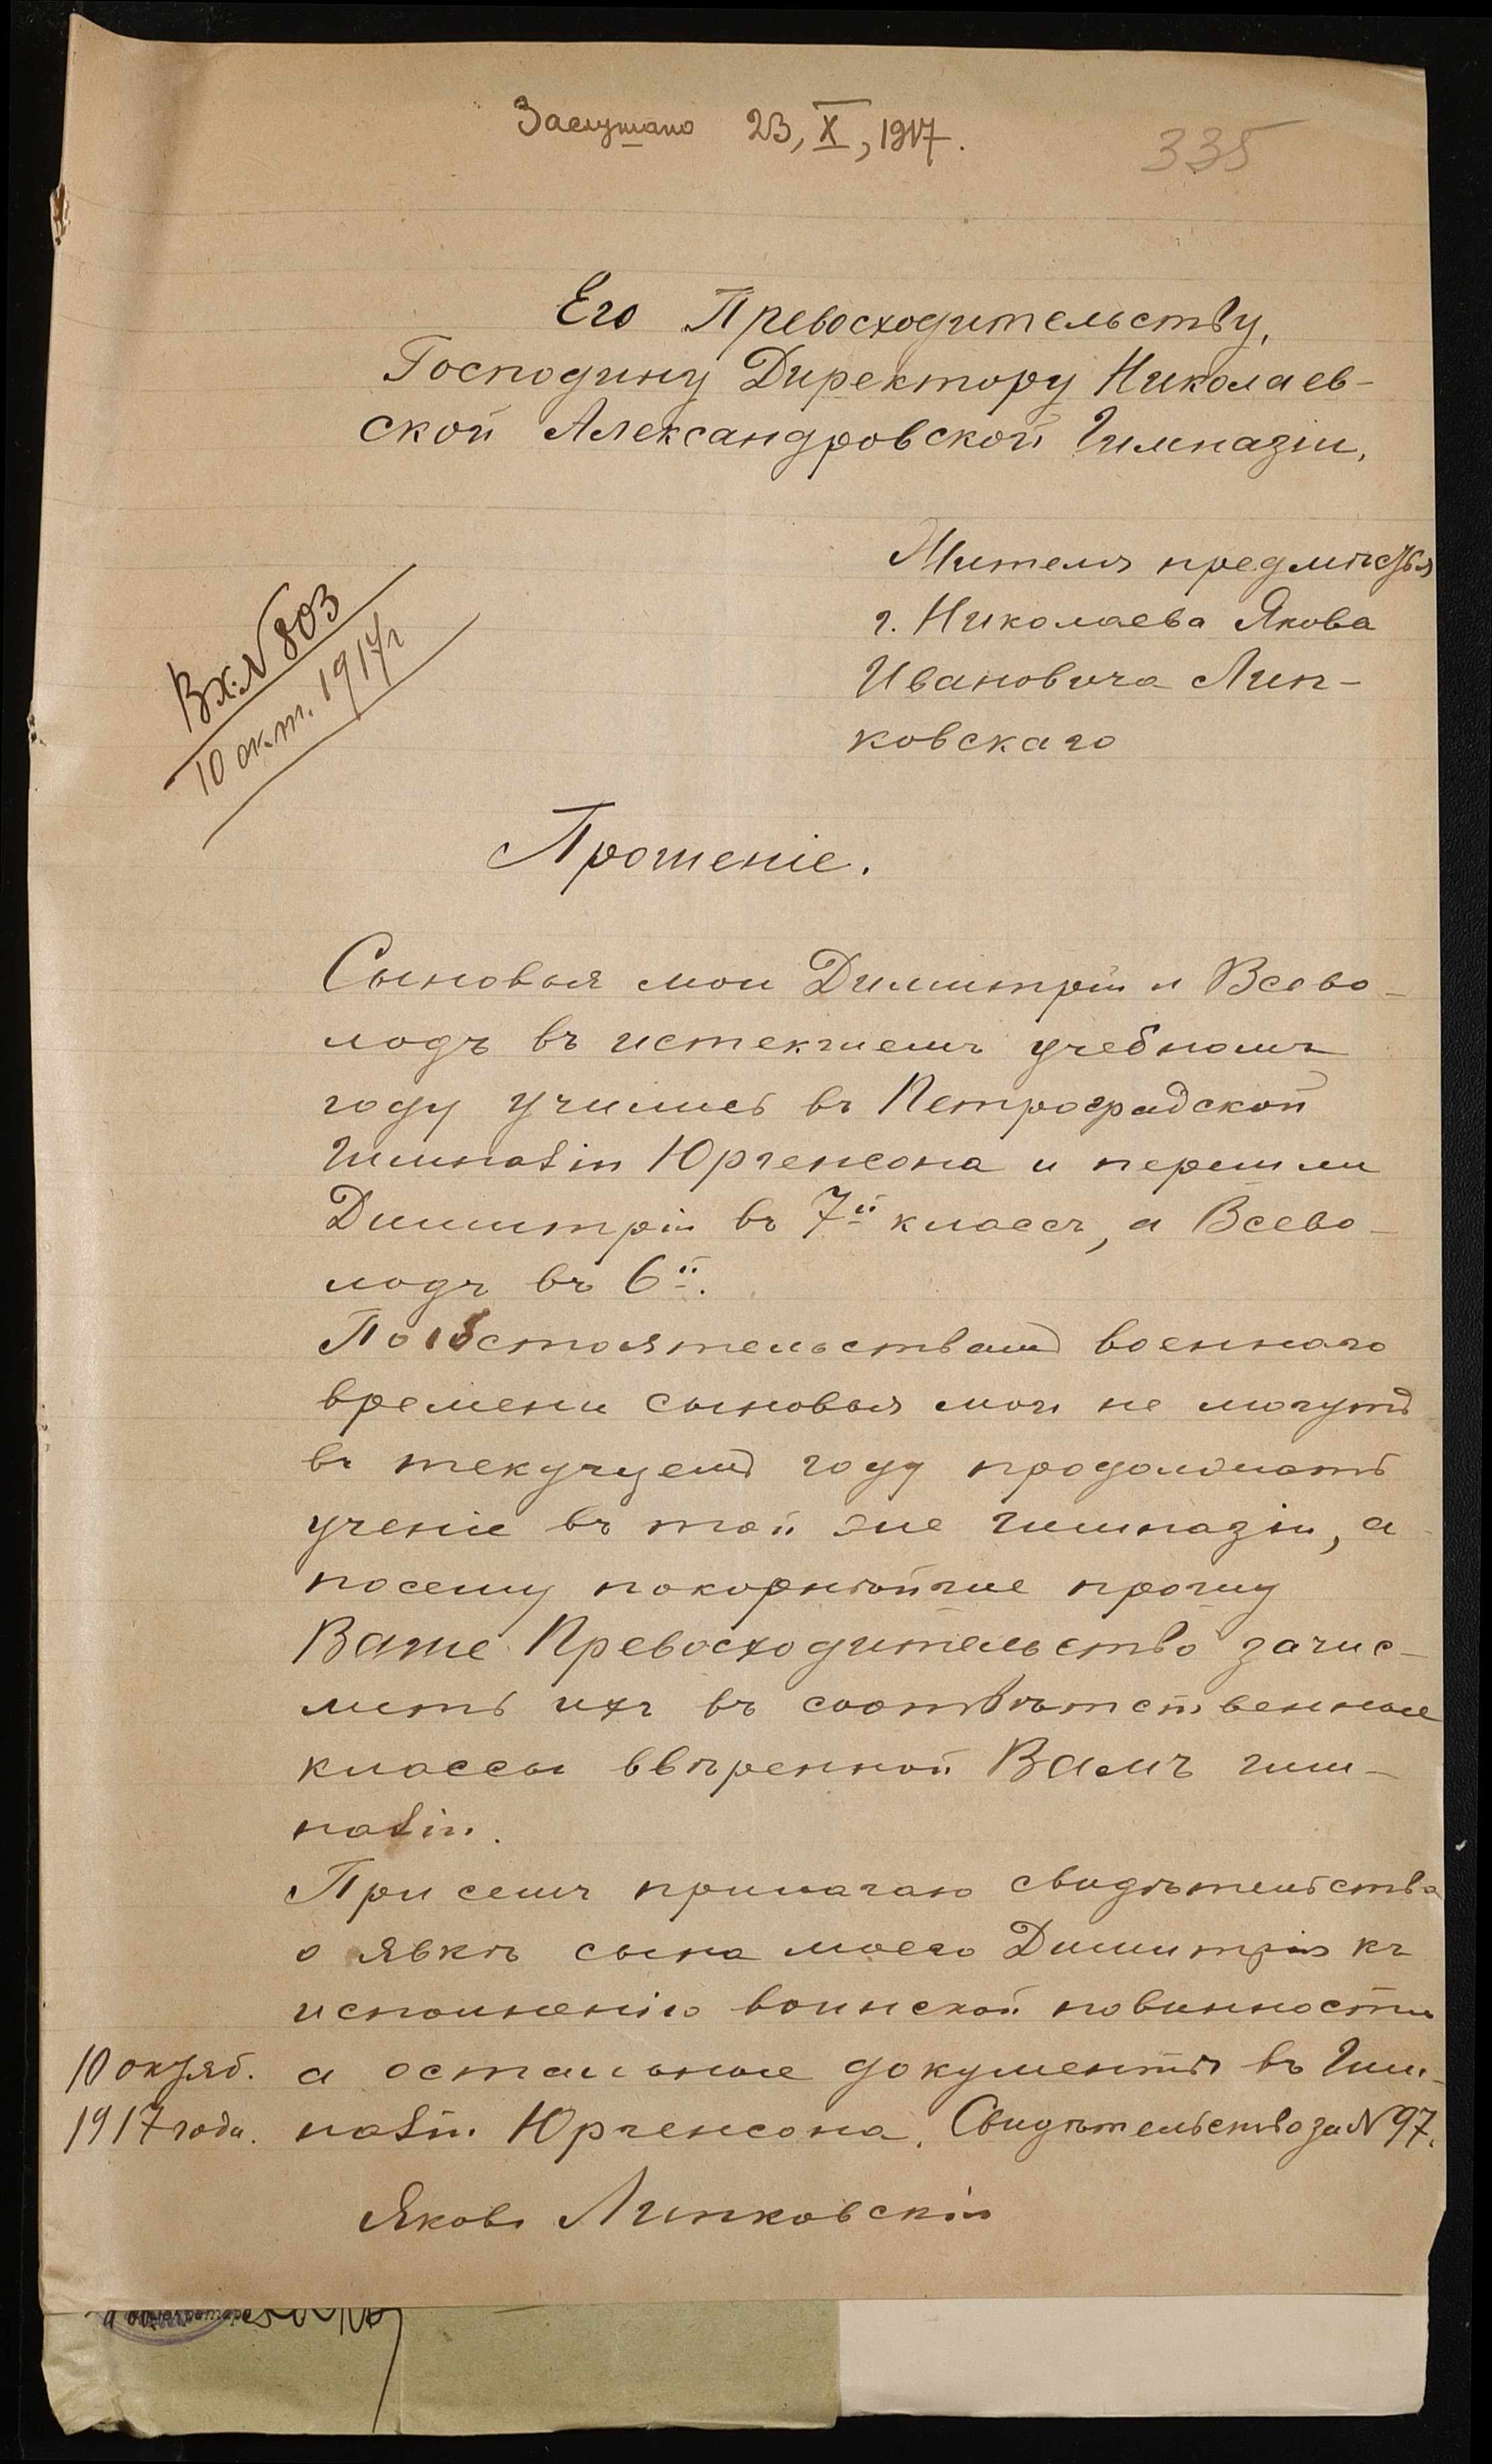 Заслушано 23, X, 1917.
335
Его Превосходительству,
Господину Директору Николаев-
ской Александровской Гимназіи,
Жителя предмѣстья
г. Николаева Якова
Ивановича Лип-
ковскаго
Вх. № 803
10 окт. 1917 г
Прошеніе.
Сыновья мои Димитрій и Всево-
лодъ въ истекшемъ учебномъ
году учились въ Петроградской
Гимназіи Юргенсона и перешли
Димитрій въ 7й классъ, а Всево-
лодъ въ 6й.
По обстоятельствамъ военнаго
времени сыновья мои не могутъ
въ текущемъ году продолжать
ученіе въ той же гимназіи, а
посему покорнѣйше прошу
Ваше Превосходительство зачис-
лить ихъ въ соотвѣтственные
классы ввѣренной Вамъ гим-
назіи.
При семъ прилагаю свидѣтельства
о явкѣ сына моего Димитрія къ
исполненію воинской повинности
а остальные документы въ Гим-
назіи Юргенсона. Свидѣтельство за № 97.
10 октяб.
1917 года.
Яковъ Липковскій